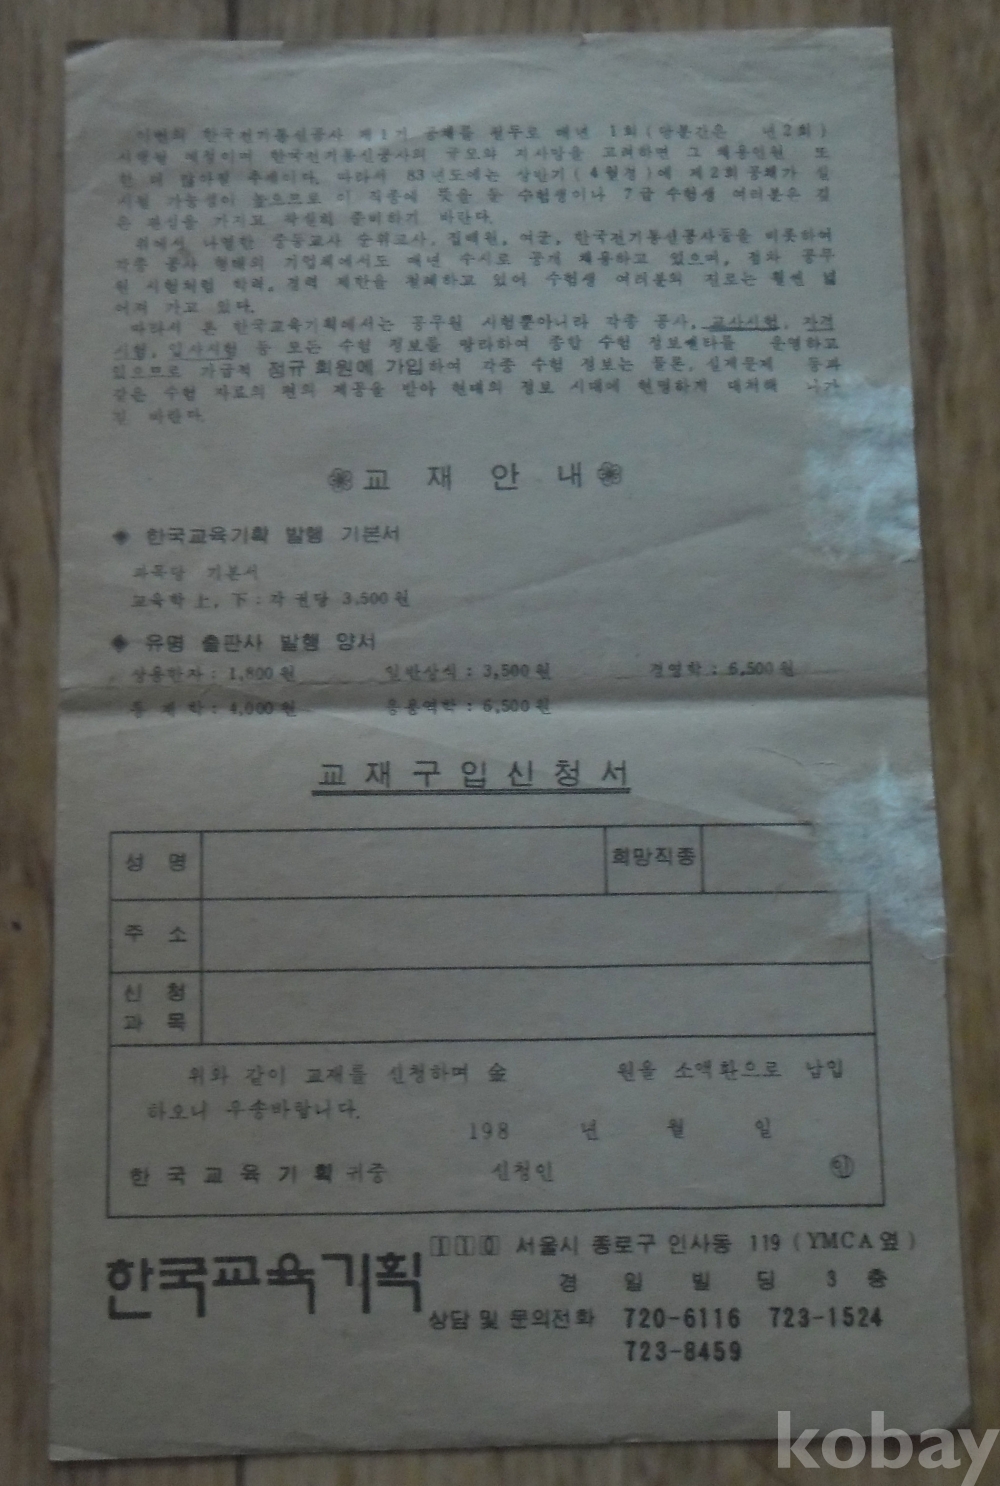 이번의 한국전기통신공사 제1기 공채를 필두로 매년 1회(당분간은 년2회)
시행될 예정이며 한국전기통신공사의 규모와 지사망을 고려하면 그 채용인원 또
한 더 많아질 추세이다. 따라서 83년도에는 상반기(4월경)에 제2회 공채가 실
시될 가능성이 높으므로 이 직종에 뜻을 둔 수험생이나 7급 수험생 여러분은 깊
은 관심을 가지고 착실히 준비하기 바란다.
위에서 나열한 중등교사 순위고사, 집배원, 여군, 한국전기통신공사등을 비롯하여
각종 공사 형태의 기업체에서도 매년 수시로 공개 채용하고 있으며, 점차 공무
원 시험처럼 학력, 경력 제한을 철폐하고 있어 수험생 여러분의 진로는 훨씬 넓
어져 가고 있다.
따라서 본 한국교육기획에서는 공무원 시험뿐아니라 각종 공사, 교사시험, 자격
시험, 입사시험 등 모든 수험 정보를 망라하여 종합 수험 정보쎈타를 운영하고
있으므로 가급적 정규 회원에 가입하여 각종 수험 정보는 물론, 실제문제 등과
같은 수험 자료의 편의 제공을 받아 현대의 정보 시대에 현명하게 대처해 나가
길 바란다.
교 재 안 내
◈ 한국교육기획 발행 기본서
과목당 기본서
교육학 上, 下 : 각 권당 3,500원
◈ 유명 출판사 발행 양서
상용한자 : 1,800원 일반상식 : 3,500원 경영학 : 6,500원
통 계 학 : 4,000원 응용역학 : 6,500원
교 재 구 입 신 청 서
성 명 희망직종
주 소
신 청
과 목
위와 같이 교재를 신청하며 金 원을 소액환으로 납입
하오니 우송바랍니다.
198 년 월 일
한 국 교 육 기 획 귀중 신청인 ㊞
한국교육기획
110 서울시 종로구 인사동 119 (YMCA옆)
경 일 빌 딩 3 층
상담 및 문의전화 720-6116 723-1524
723-8459
kobay